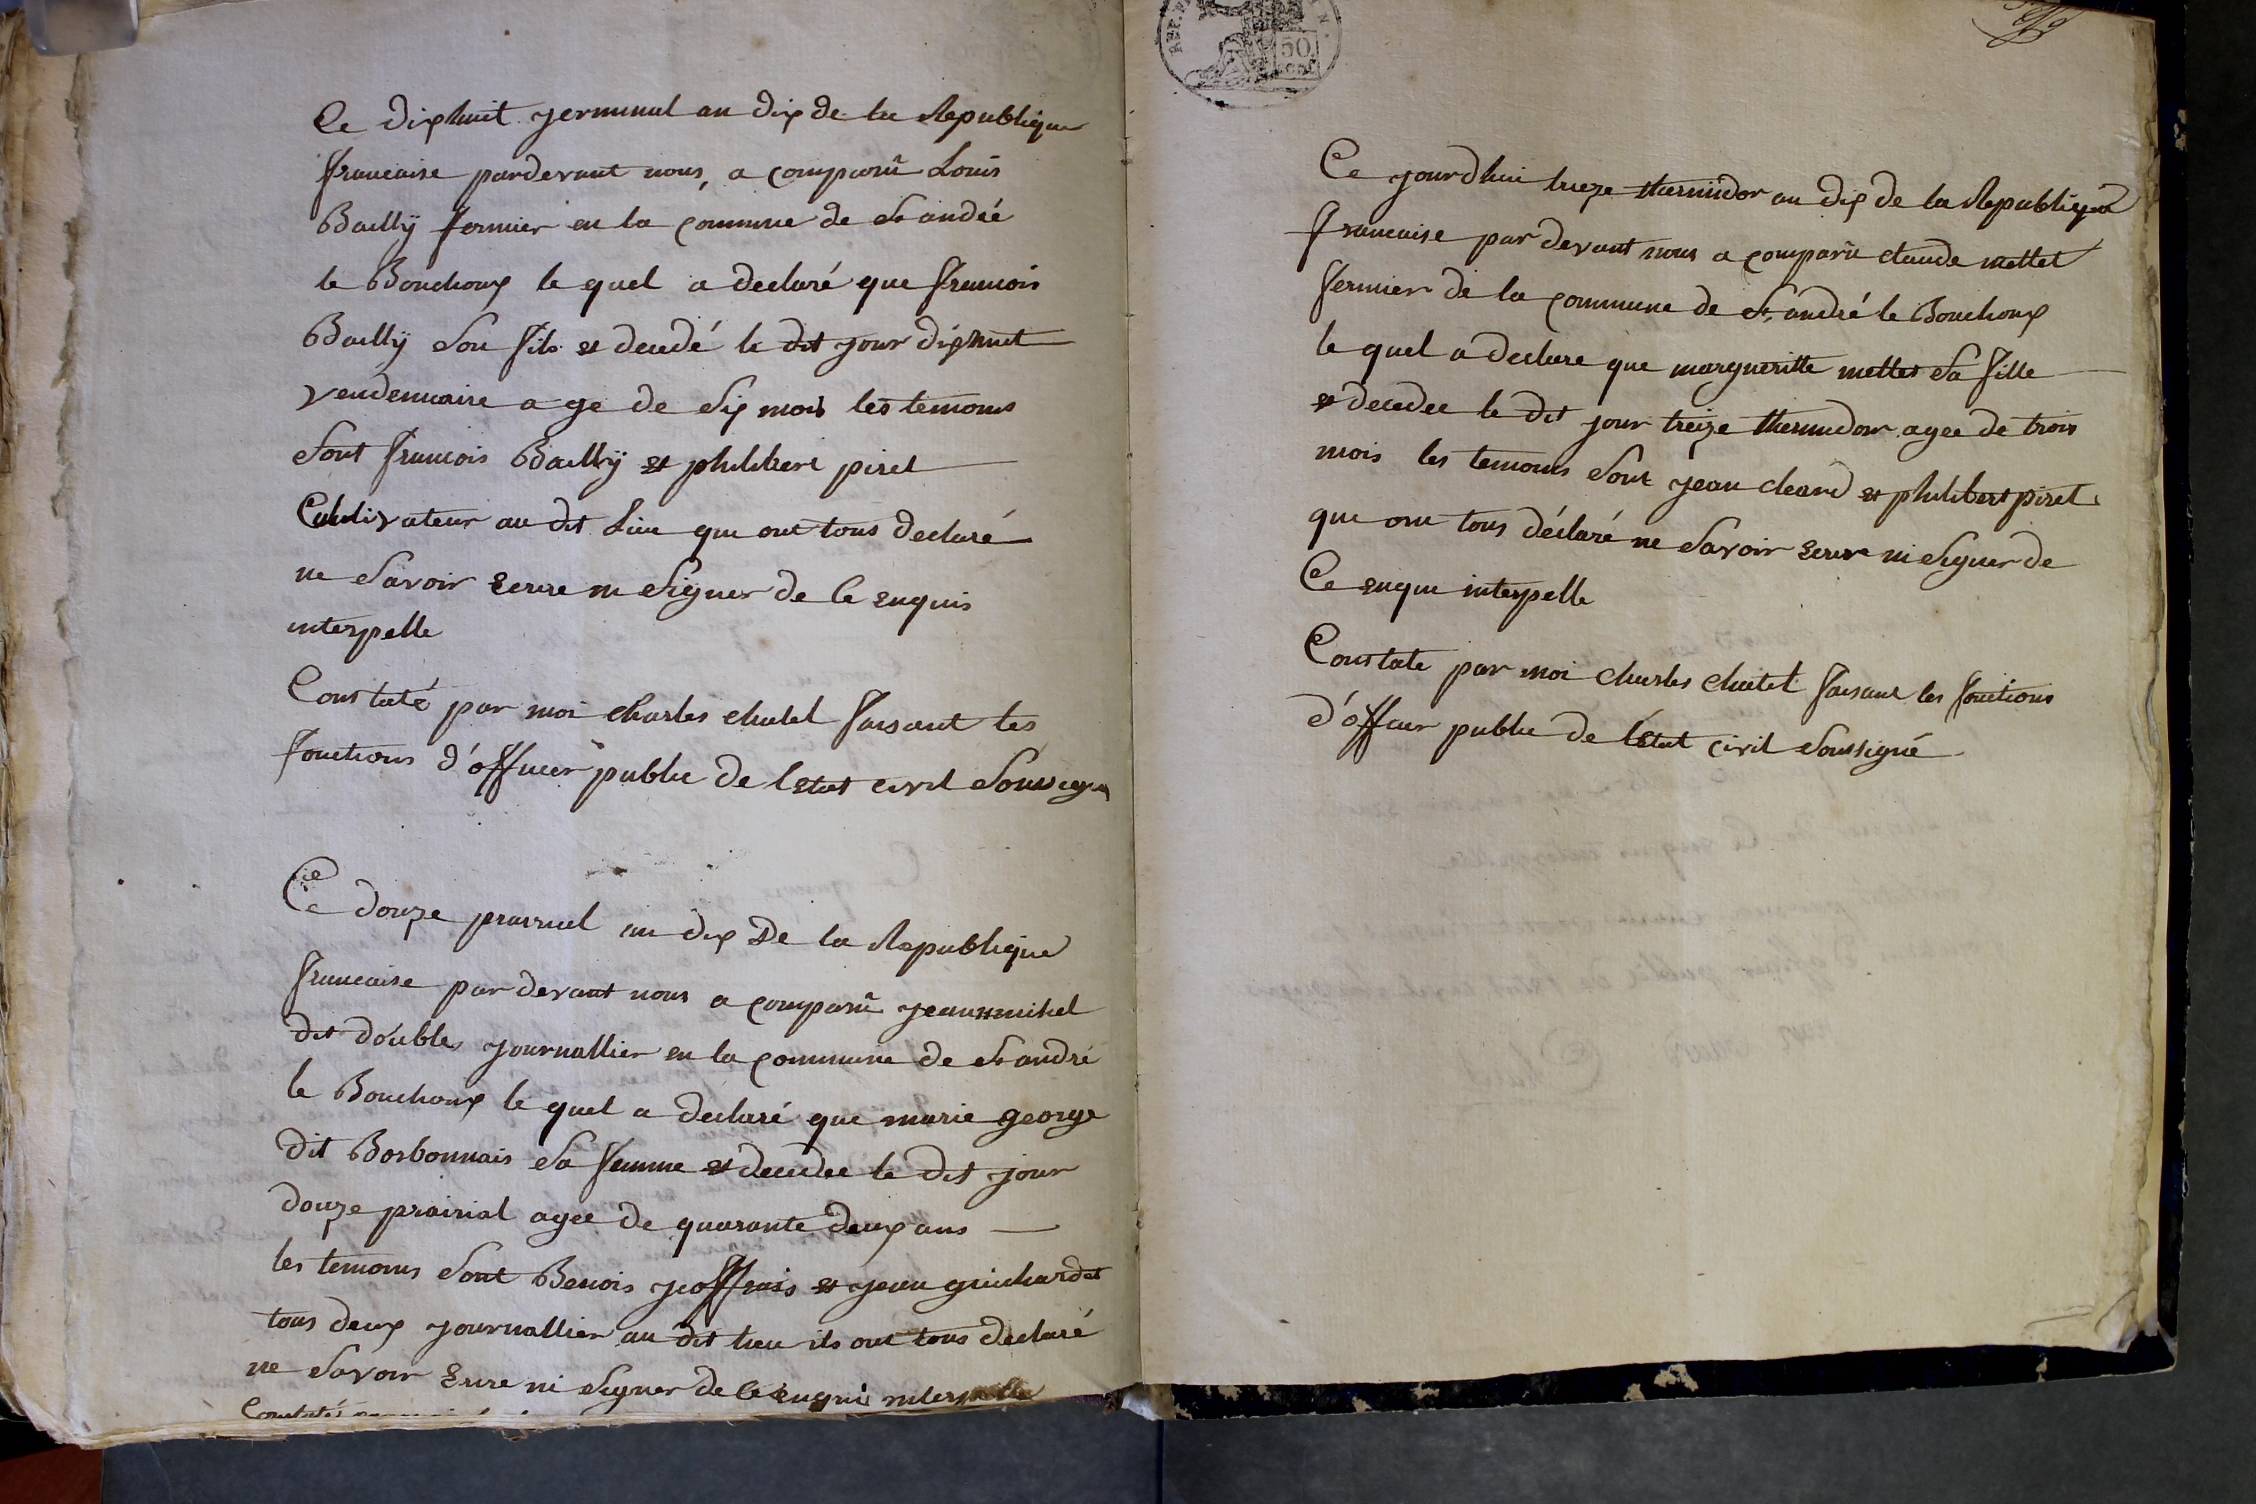 Ce dixhuit germinal an dix de la Republique
francaise pardevant nous, a comparu Louis
Bailly fermier en la commune de St andré
le Bouchoux le quel a declaré que francois
Bailly son fils et decedé le dit jour dixhuit
vendemiaire age de six mois les temoins
sont francois Bailly et philibert piret
Cultivateur au dit Lieu qui ont tous declaré
ne savoir Ecrire ni signer de Ce enquis
interpelle
Constaté par moi Charles chatel faisant les
fonctions d'officier public de l'Etat civil soussigné
Ce douze prairial an dix De la Republique
francaise par devant nous a comparu jean michel
dit doubles journallier en la commune de St andré
le Bouchoux le quel a declaré que marie george
dit Borbonnais sa femme et decedee le dit jour
douze prairial agee de quarante deux ans
les temoins sont Benois joffrais et jean guichardet
tous deux journallier au dit lieu ils ont tous declaré
ne savoir Ecrire ni signer de Ce enqui interpelle
Constaté
REP.
50
Ce jourdhui treze thermidor an dix de la Republique
francaise par devant nous a comparu claude mettet
fermier de la commune de St andré le Bouchoux
le quel a declare que margueritte mettet sa fille
et decedee le dit jour treize thermidor agee de trois
mois les temoins sont jean cleard et philibert piret
qui ont tous déclaré ne savoir Ecrire ni signer de
Ce enqui interpelle
Constate par moi charles chatel faisant les fonctions
d'officier public de l'Etat civil soussigné